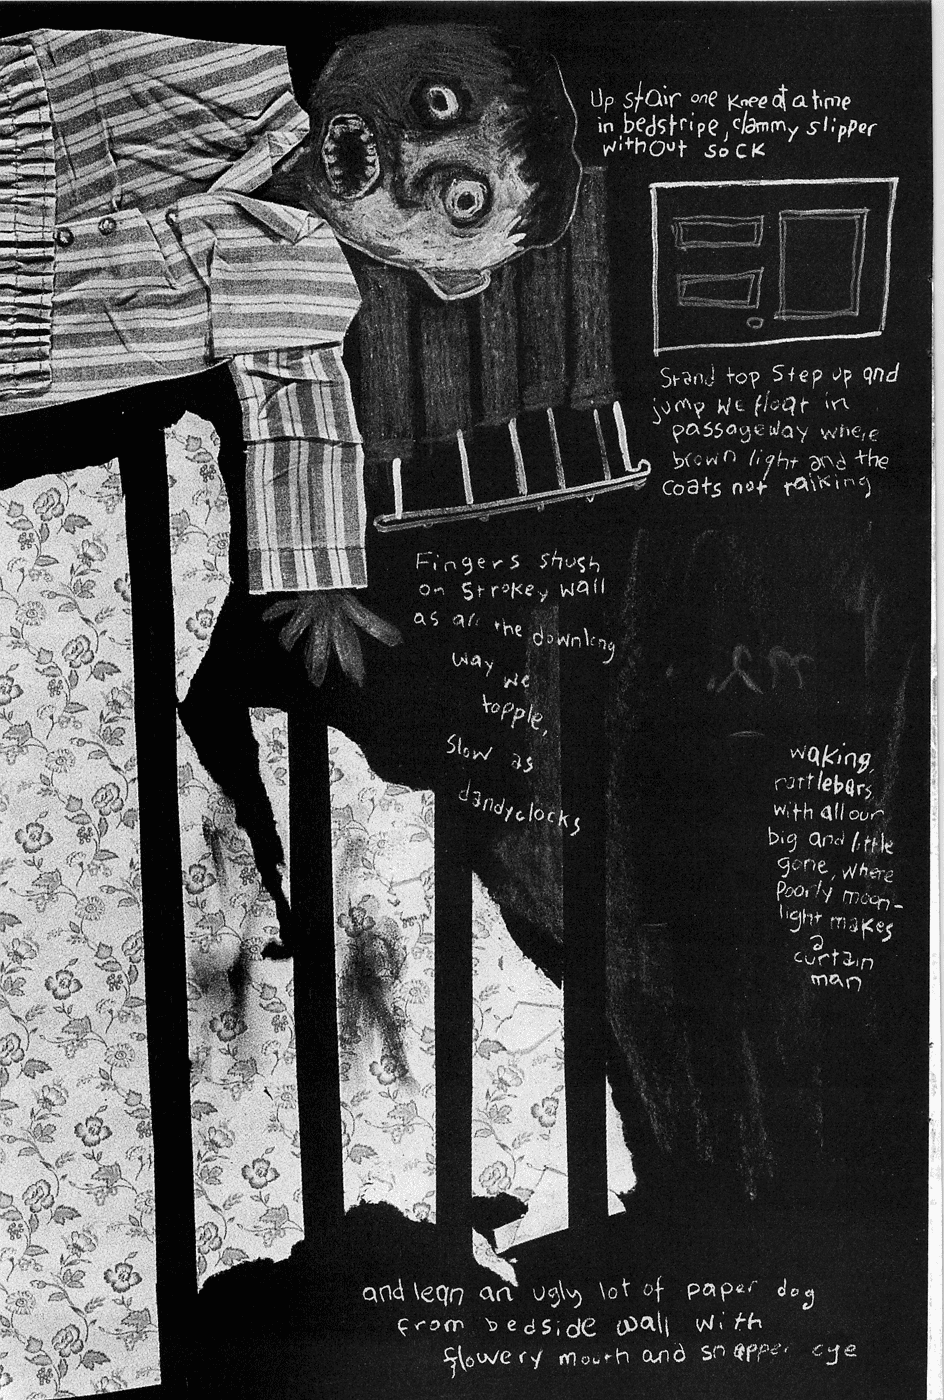 Up stair one knee at a time
in bedstripe, clammy slipper
without sock
Stand top step up and
jump we float in
passageway where
brown light and the
coats not talking
Fingers shush
on strokey wall
as all the downlong
way we
topple,
slow as
dandyclocks
waking,
rattlebars,
with all our
big and little
gone, where
poorly moon-
light makes
a
curtain
man
and lean an ugly lot of paper dog
from bedside wall with
flowery mouth and snapper eye